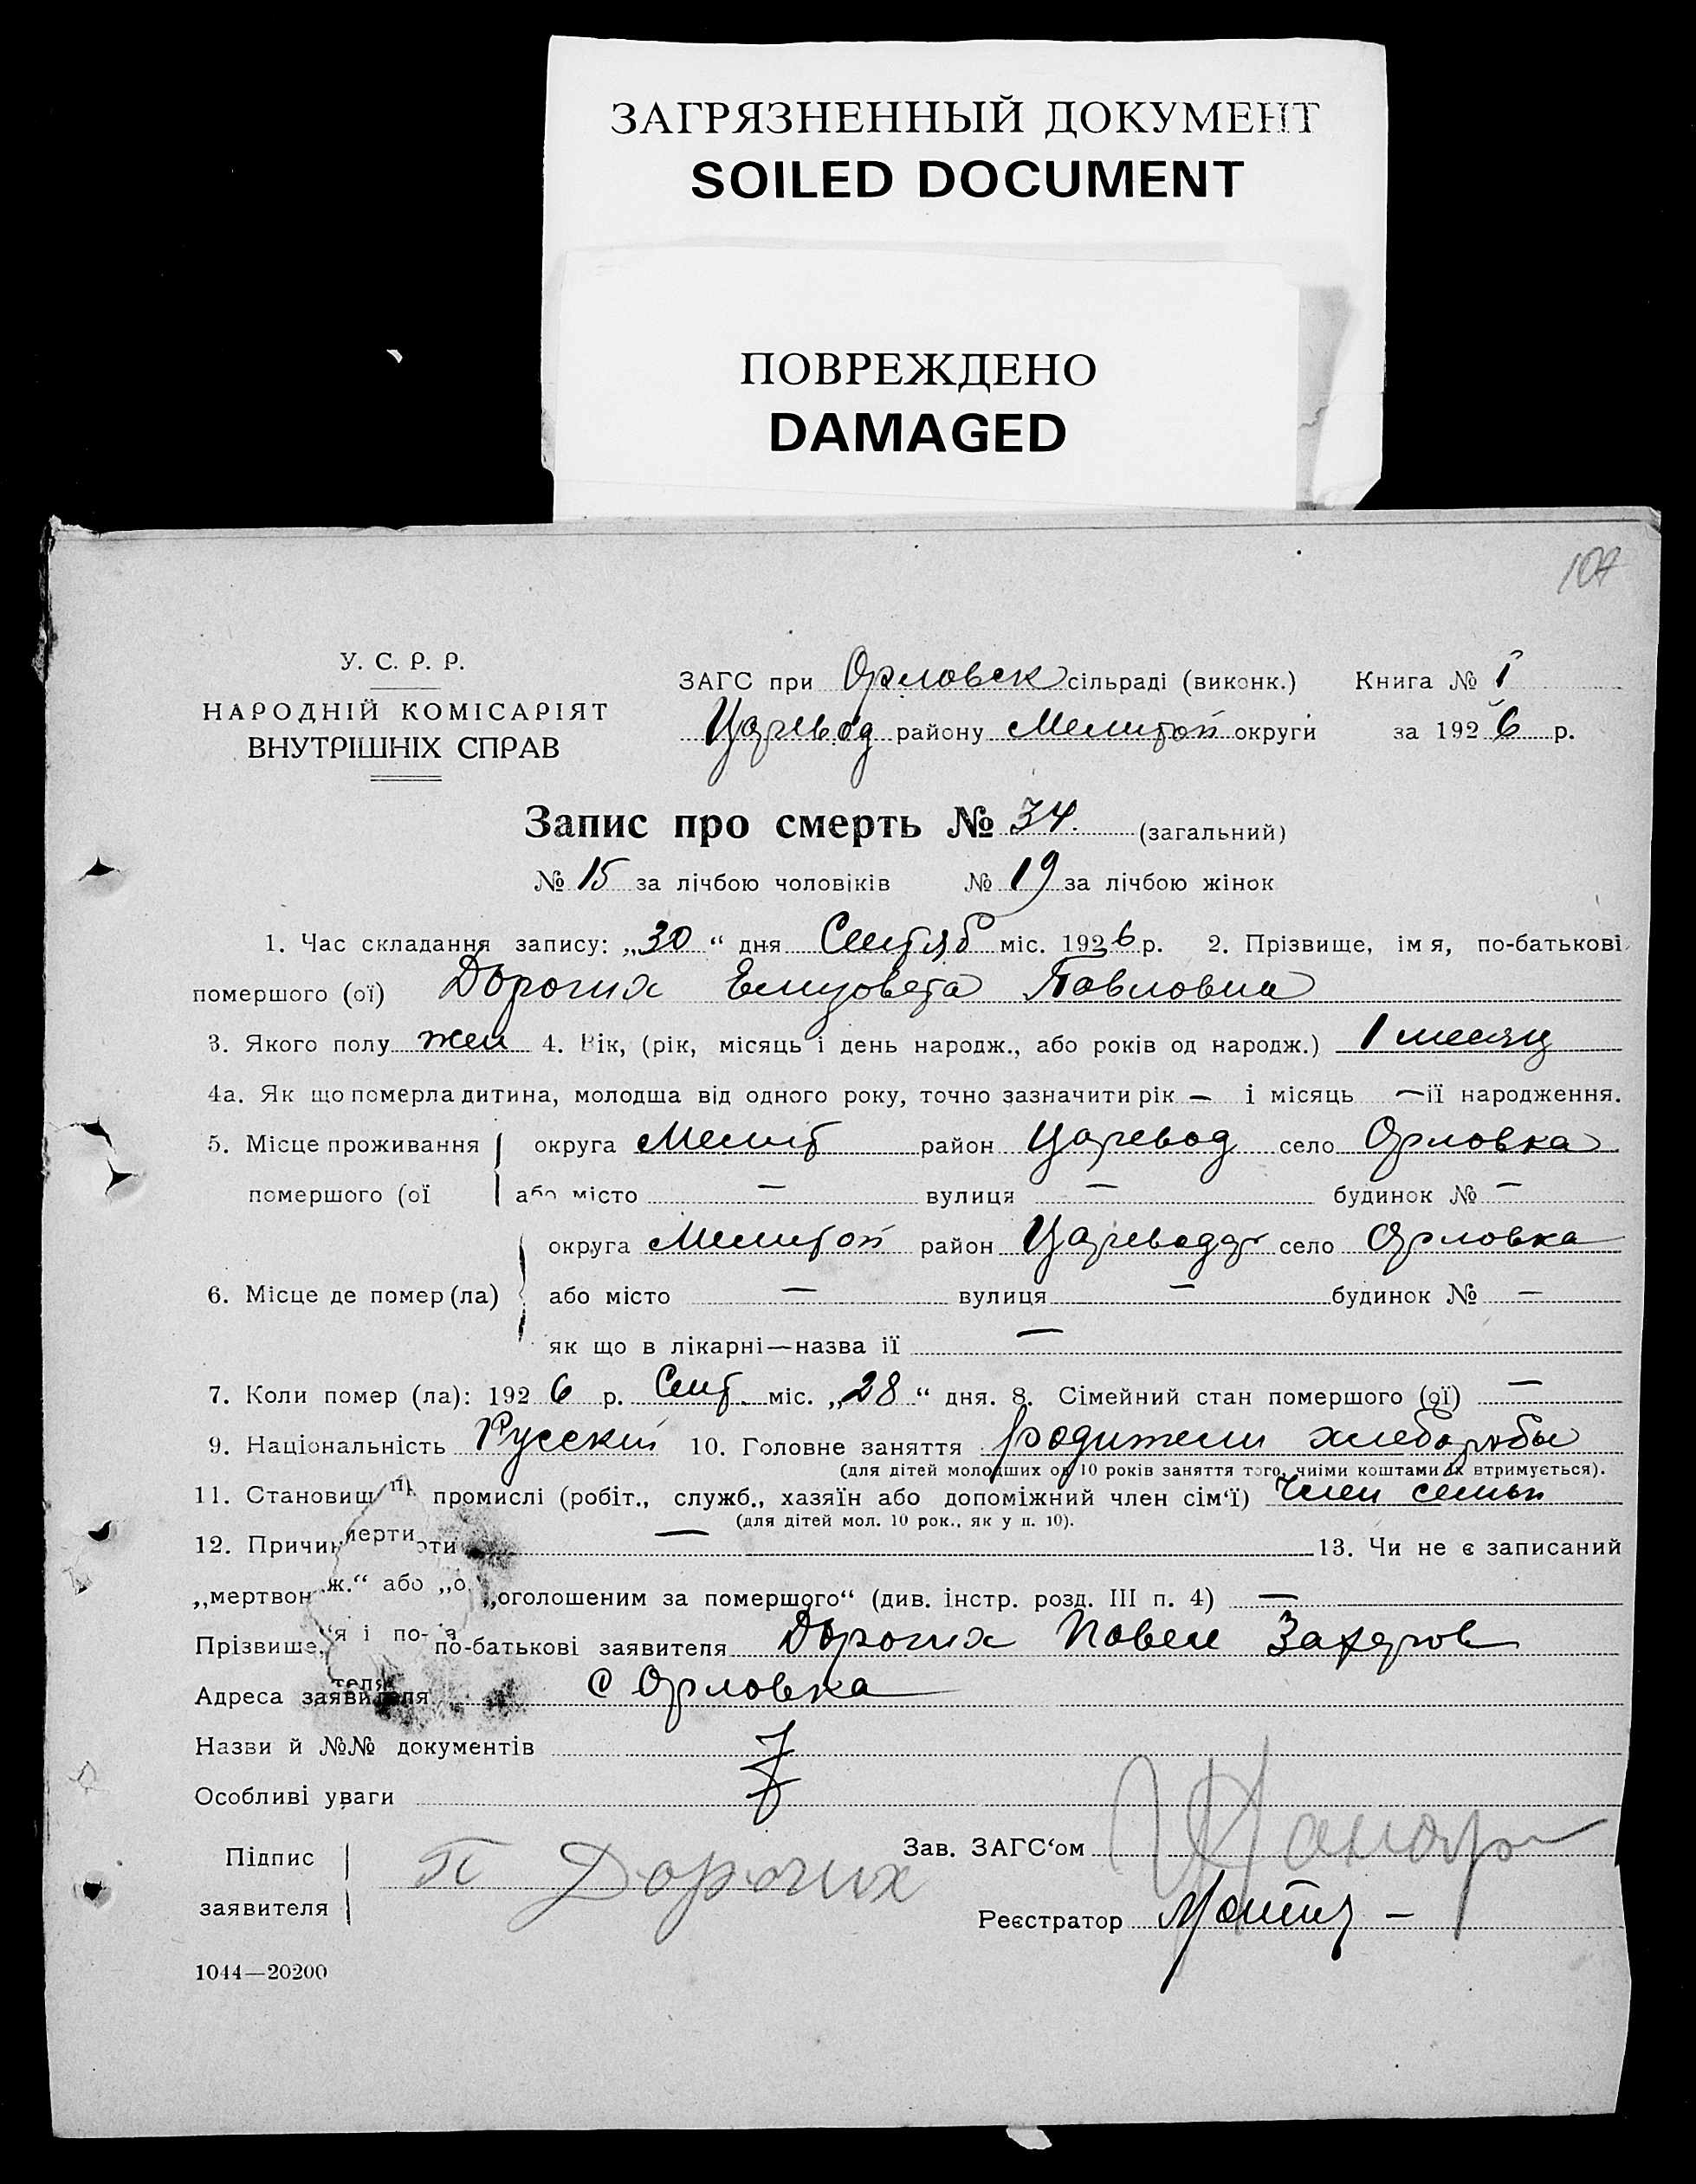 ЗАГРЯЗНЕННЫЙ ДОКУМЕНТ
SOILED DOCUMENT
ПОВРЕЖДЕНО
DAMAGED
107
У. С. Р. Р.
НАРОДНІЙ КОМІСАРІЯТ
ВНУТРІШНІХ СПРАВ
ЗАГС при Орловск сільраді (виконк.) Книга № 1
Царевод району Мелитоп округи за 1926 р.
Запис про смерть № 34. (загальний)
№ 15 за лічбою чоловіків № 19 за лічбою жінок
1. Час складання запису: „30“ дня Сентяб міс. 1926 р. 2. Прізвище, імя, по-батькові
помершого (ої) Дорогих Елизовета Павловна
3. Якого полу жен 4. Вік, (рік, місяць і день народж., або років од народж.) 1 месяц
4а. Як що померла дитина, молодша від одного року, точно зазначити рік — і місяць — її народження.
5. Місце проживання округа Мелит район Царевод село Орловка
помершого (ої або місто — вулиця — будинок № —
округа Мелитоп район Царевод село Орловка
6. Місце де помер (ла) або місто — вулиця — будинок № —
як що в лікарні—назва її —
7. Коли помер (ла): 1926 р. Сент. міс. „28“ дня. 8. Сімейний стан помершого (ої) —
9. Національність Русский 10. Головне заняття родители хлеборобы
(для дітей молодших од 10 років заняття того, чиїми коштами їх втримується).
11. Становищ промислі (робіт., служб., хазяїн або допоміжний член сім'ї) Член семьи
(для дітей мол. 10 рок., як у п. 10).
12. Причин ерти — 13. Чи не є записаний
„мертвон ж.“ або „оголошеним за помершого“ (див. інстр. розд. III п. 4) —
Прізвище, я і по-батькові заявителя Дорогих Павел Захаров
Адреса заявителя с Орловка
Назви й №№ документів
Особливі уваги
Підпис
заявителя П Дорогих
Зав. ЗАГС'ом
Реєстратор
1044—20200